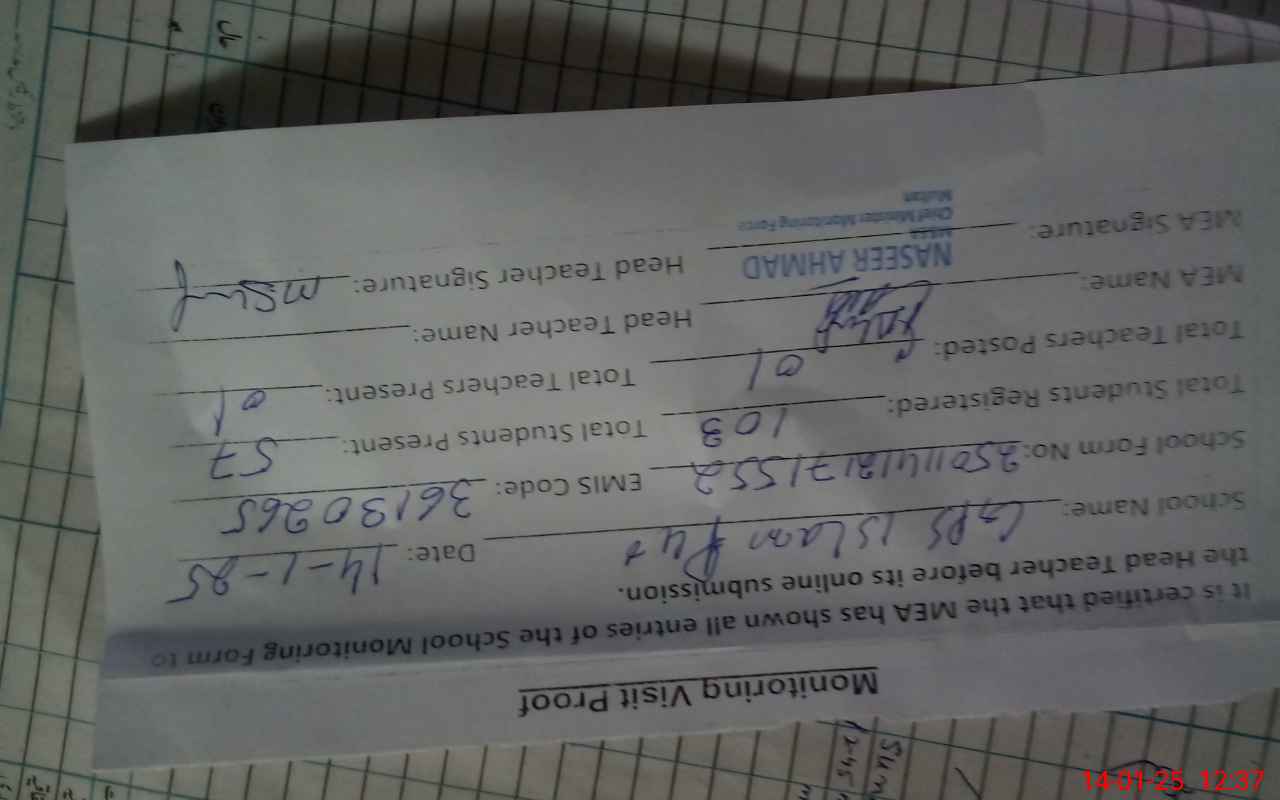 Monitoring Visit Proof
It is certified that the MEA has shown all entries of the School Monitoring Form to
the Head Teacher before its online submission.
School Name: GPS Islam Pur Date: 14-1-25
School Form No: 25011412171552 EMIS Code: 36130265
Total Students Registered: 103 Total Students Present: 57
Total Teachers Posted: 01 Total Teachers Present: 01
MEA Name: Head Teacher Name:
MEA Signature: Head Teacher Signature:
NASEER AHMAD
MEA
Chief Minister Monitoring Force
Multan
14-01-25 12:37